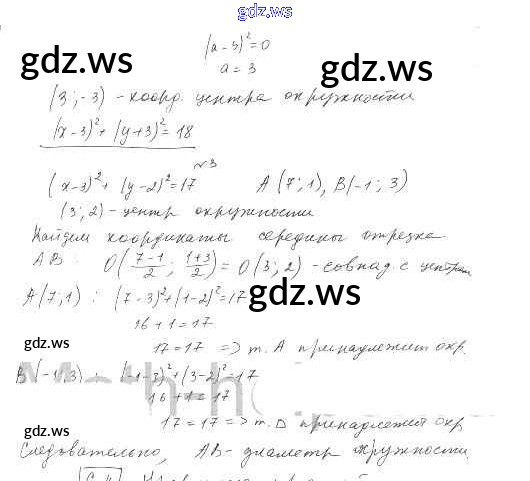 gdz.ws
(a-3)²=0
gdz.ws gdz.ws
a = 3
(3; -3) - коорд. центра окружности
(x-3)² + (y+3)² = 18
№3
(x-3)² + (y-2)² = 17 A(7; 1), B(-1; 3)
(3; 2) - центр окружности
Найдем координаты середины отрезка
AB: O((7-1)/2; (1+3)/2) = O(3; 2) - совпад. с центром
A(7; 1): (7-3)² + (1-2)² = 17
gdz.ws
16 + 1 = 17
gdz.ws
17 = 17 => т. A принадлежит окр.
B(-1; 3): (-1-3)² + (3-2)² = 17
16 + 1 = 17
17 = 17 => т. D принадлежит окр
gdz.ws
Следовательно, AB - диаметр окружности
gdz.ws